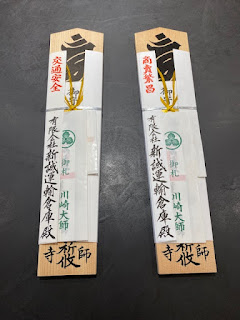 交通安全
御
有限会社新誠運輸倉庫殿
御札
川崎大師
寺
師
商売繁昌
御
有限会社新誠運輸倉庫殿
御札
川崎大師
寺
師